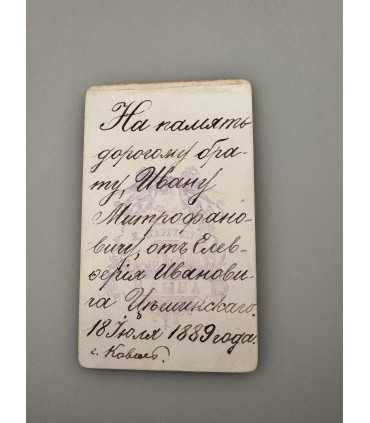 На память
дорогому бра-
ту, Ивану
Митрофано-
вичу, отъ Елев-
ѳерія Иванови-
ча Цѣшинскаго.
18 Іюля 1889 года.
г. Ковель.